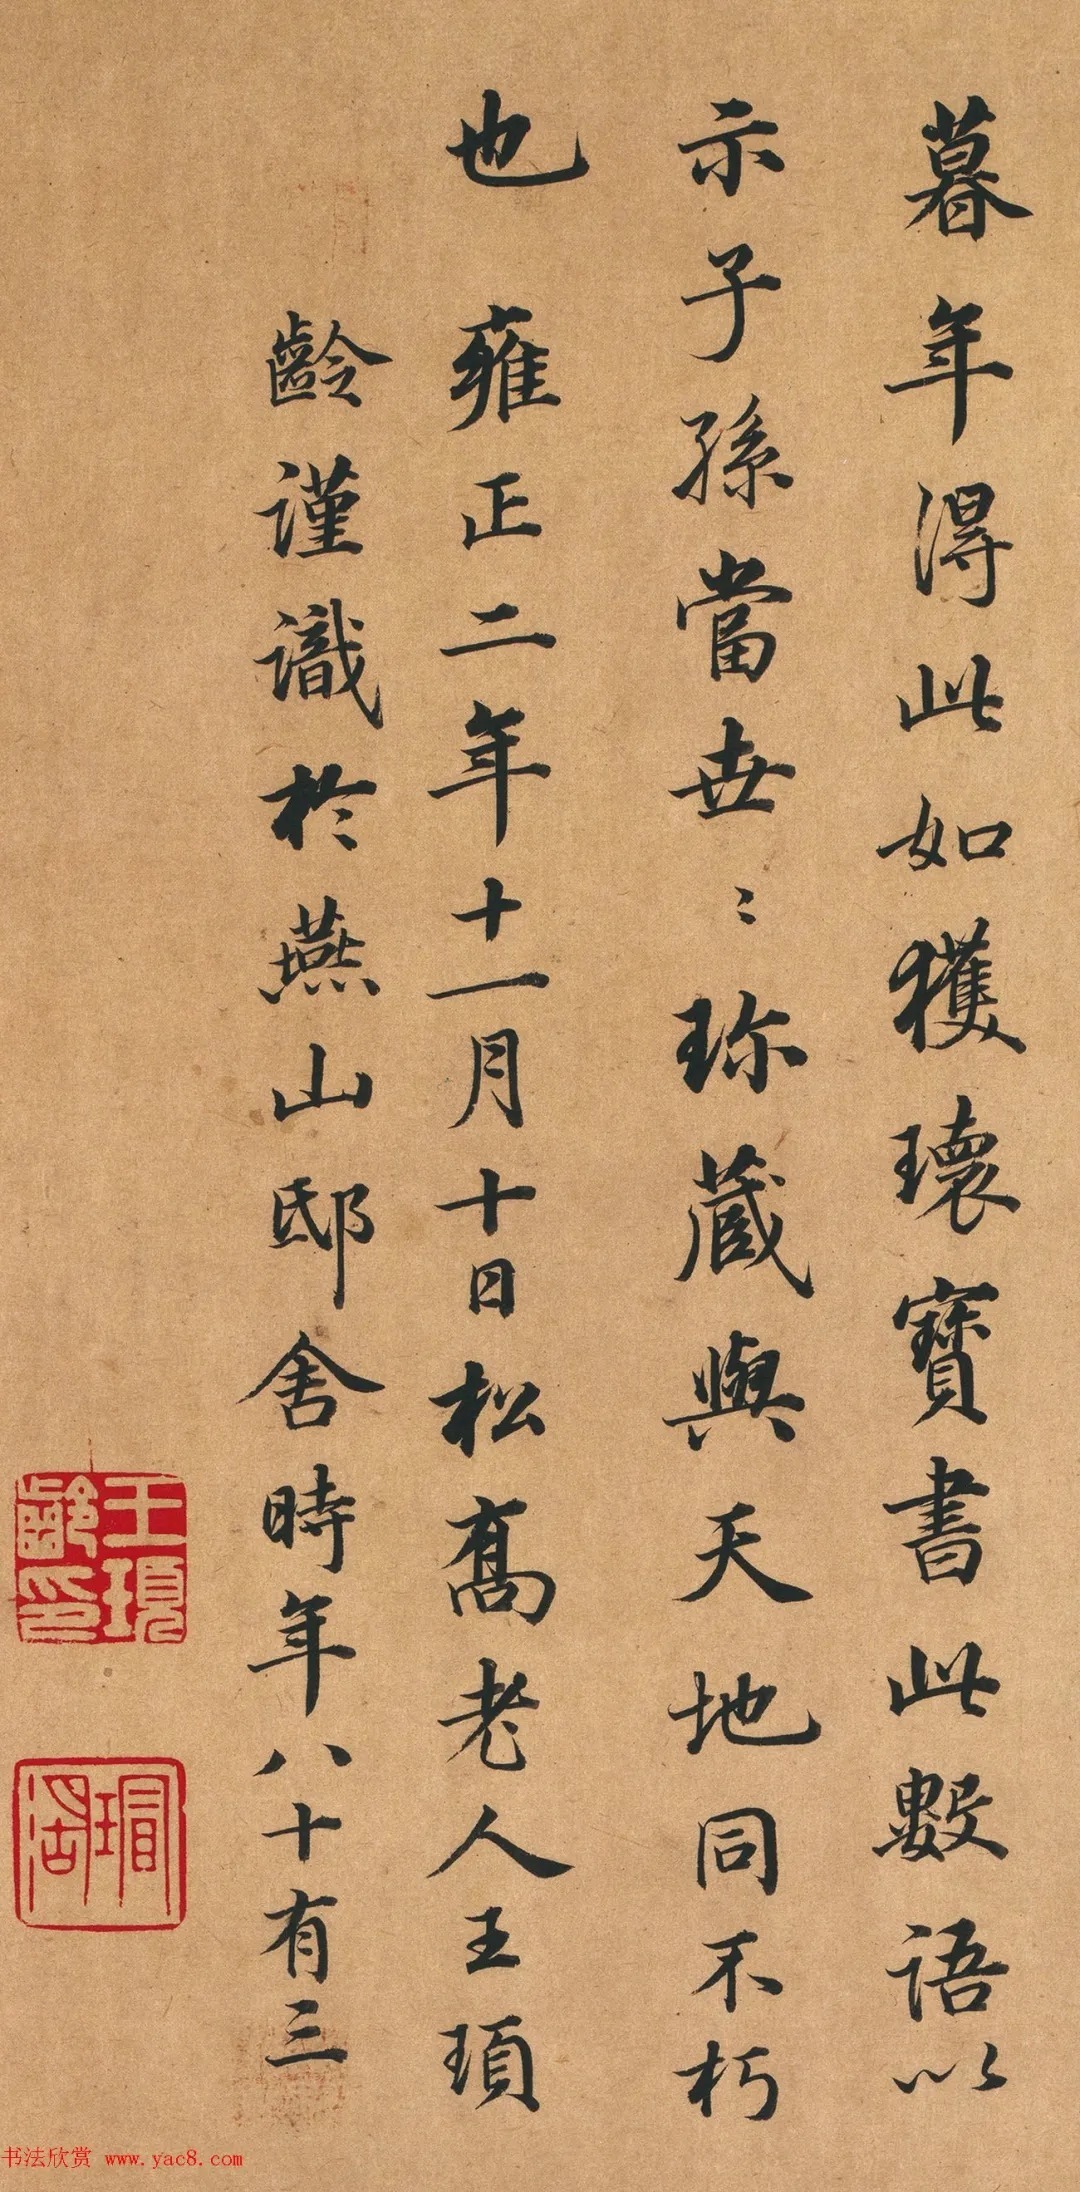 暮年得此如獲瓌寶書此數語以
示子孫當世〻珍藏與天地同不朽
也 雍正二年十一月十日松喬老人王頊
齡謹識於燕山邸舍時年八十有三
王頊
齡印
书法欣赏 www.yac8.com